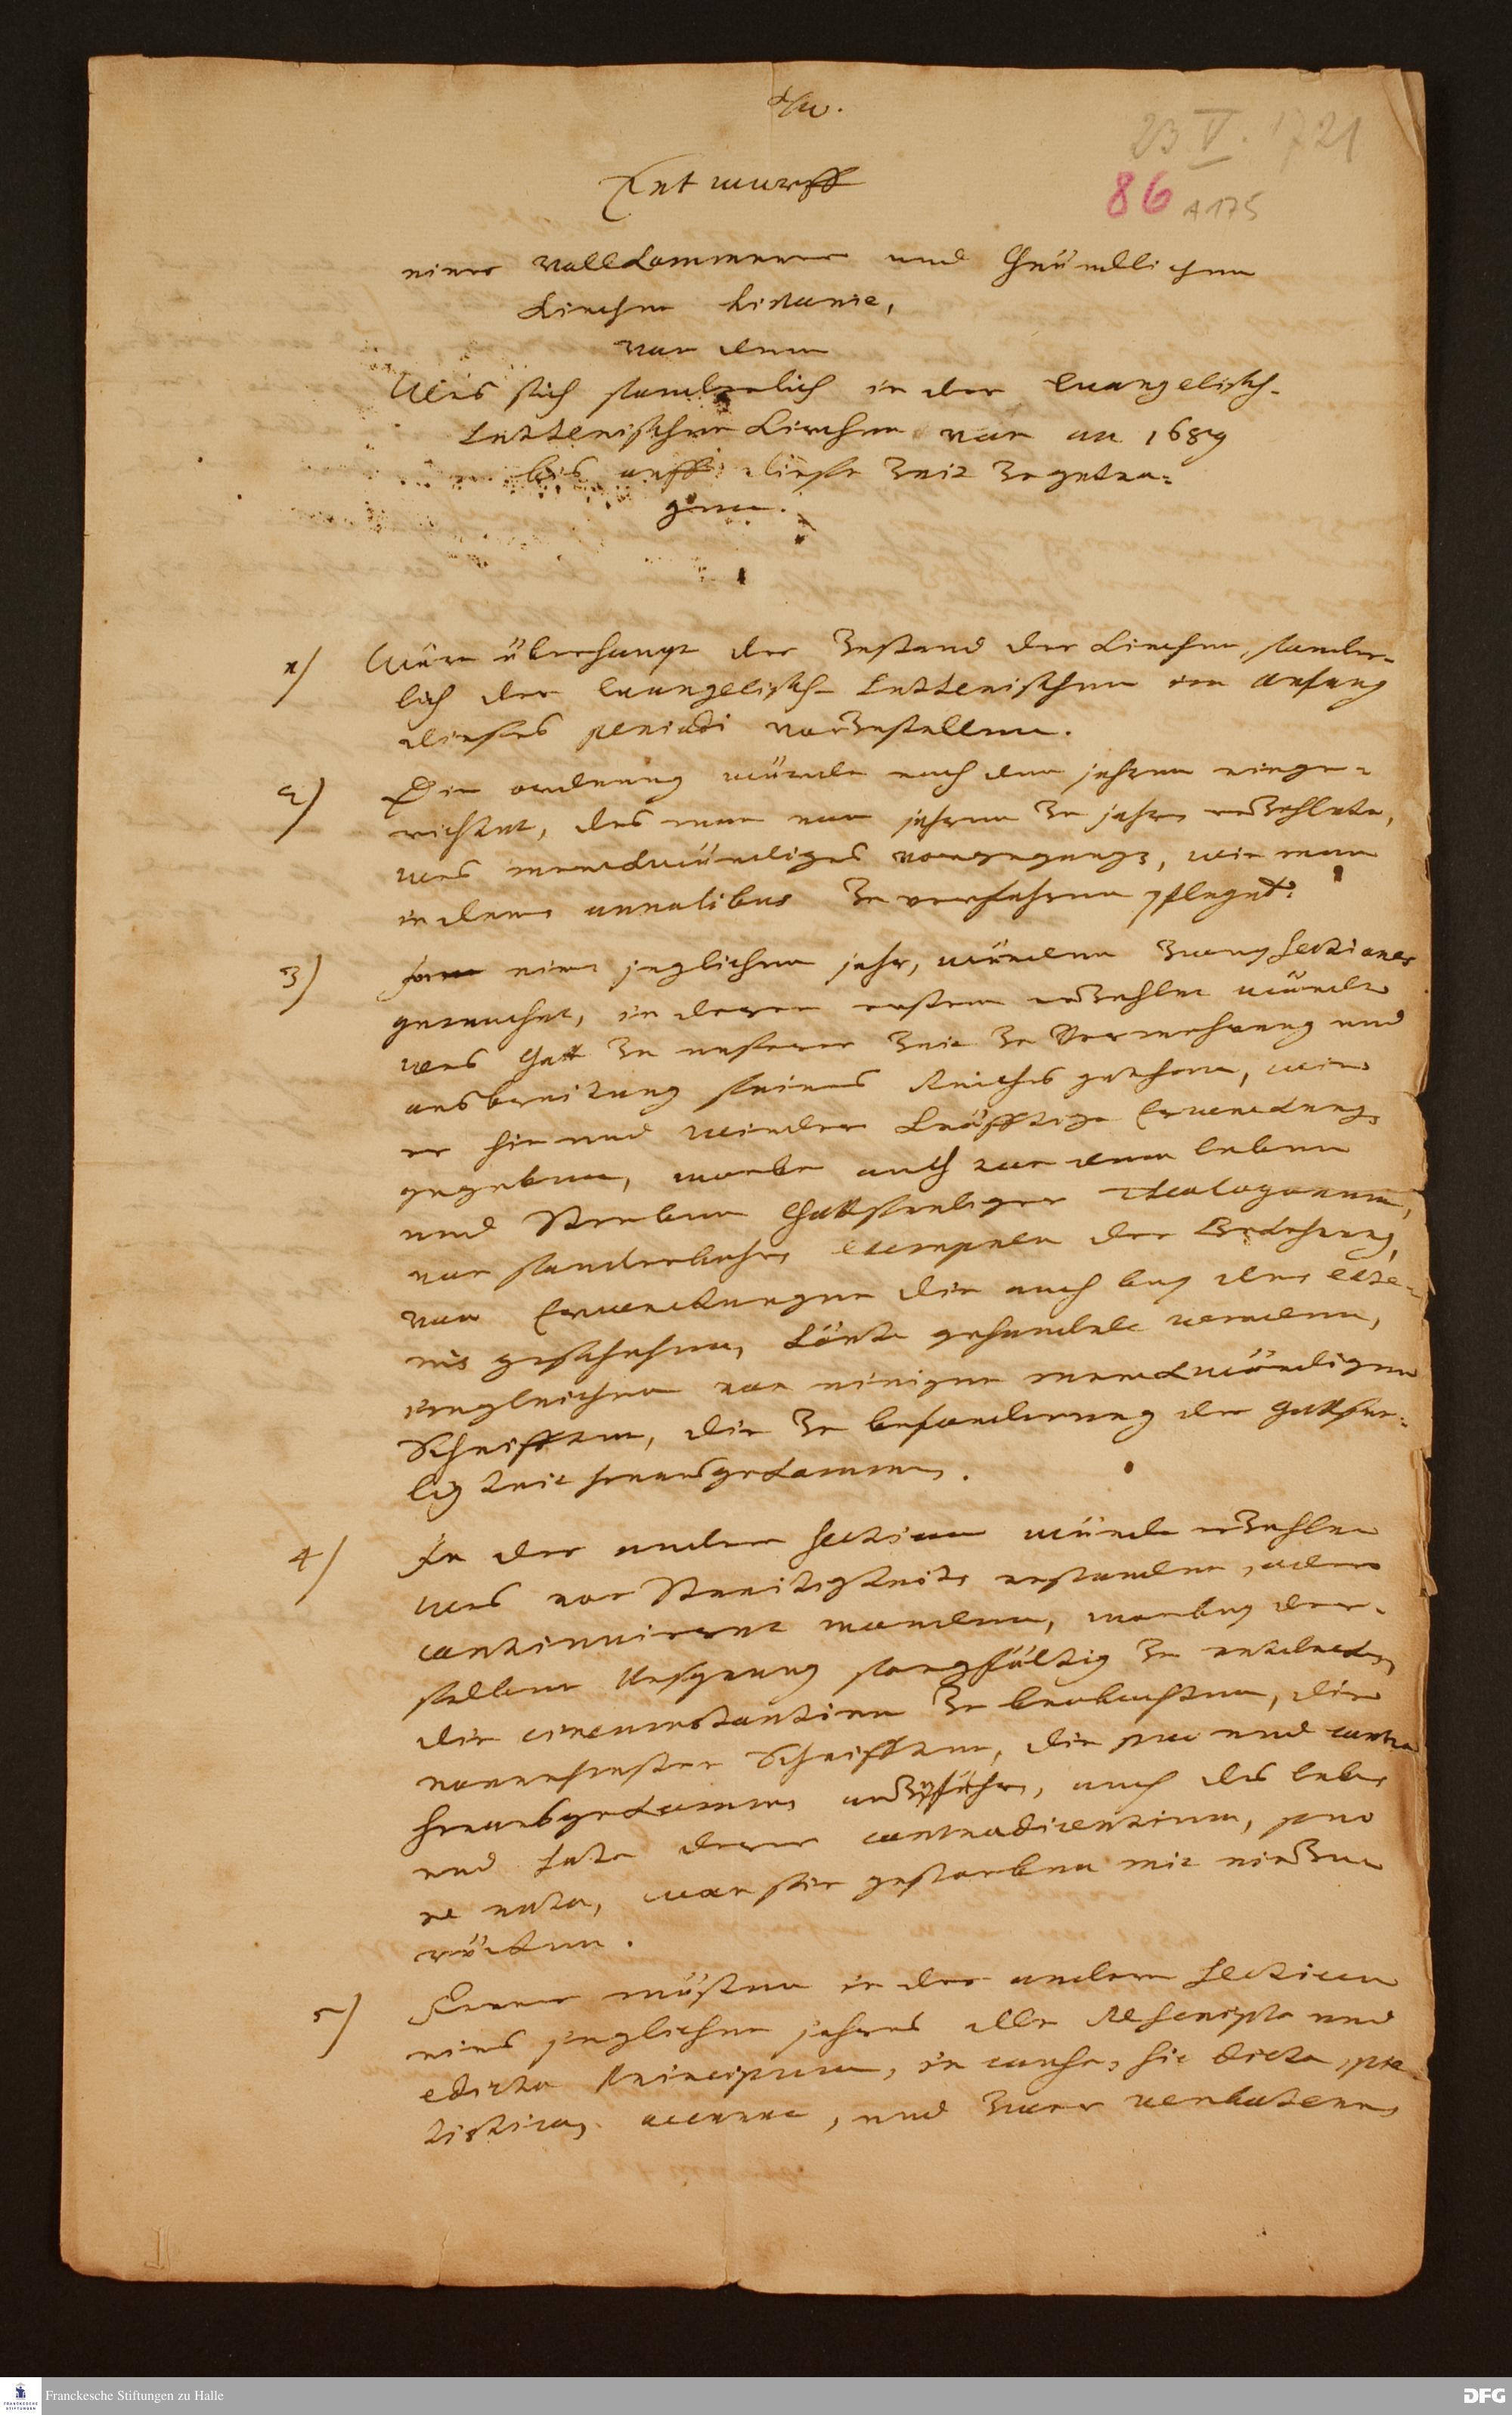 23 V. 1721
86 A 175
Entwurff
einer vollkommenen und Gründlichen
Kirchen historie,
von dem
Was sich sonderlich in der Evangelisch-
Lutterischen Kirchen von an 1689
bis auff diese Zeit zugetra-
gen.
1) Wäre überhaupt der Zustand der Kirchen, sonder-
lich der Evangelisch- Lutterischen im anfang
dieses periodi vorzustellen.
2) Die ordnung würde nach den jahren einge-
richtet, das man von jahren zu jahre erzehlete,
was merckwürdiges vorgegangen, wie man
in denen annalibus zu verfahren pfleget.
3) Von einem jeglichen jahr, würden zwey Sectiones
gemachet, in deren ersten erzehlet würde
was Gott zu unserer Zeit zu Vermehrung und
ausbreitung seines Reiches gethan, wie
er hin und wieder kräfftige Erweckung
gegeben, worbe auch von dem leben
und Sterben Gottseeliger Theologorum,
von sonderbahren Exempeln der Bekehrung,
von Erweckungen die auch bey denen exte-
ris geschehen, könte gehandelt werden,
Imgleichen von einigen merckwürdigen
Schrifften, die zu beforderung der Gottsee-
ligkeit herausgekommen.
4) In der andern Section würde erzehlet
was vor Streitigkeite entstanden, oder
continuiret worden, worbey der-
selben Ursprung sorgfältig zu entdecken,
die circumstantien zu beobachten, die
vornehmsten Schrifften, die pro und contra
herausgekommen anzuführen, auch das leben
und fata derer contradicentium, pro
re nata, wan sie gestorben mit einzu
rücken.
5) Ferner müsten in der andern Section
eines jeglichen jahres alle Rescripta und
edicta Principum, in causa, sic dicta, pie
tistica, und zwar